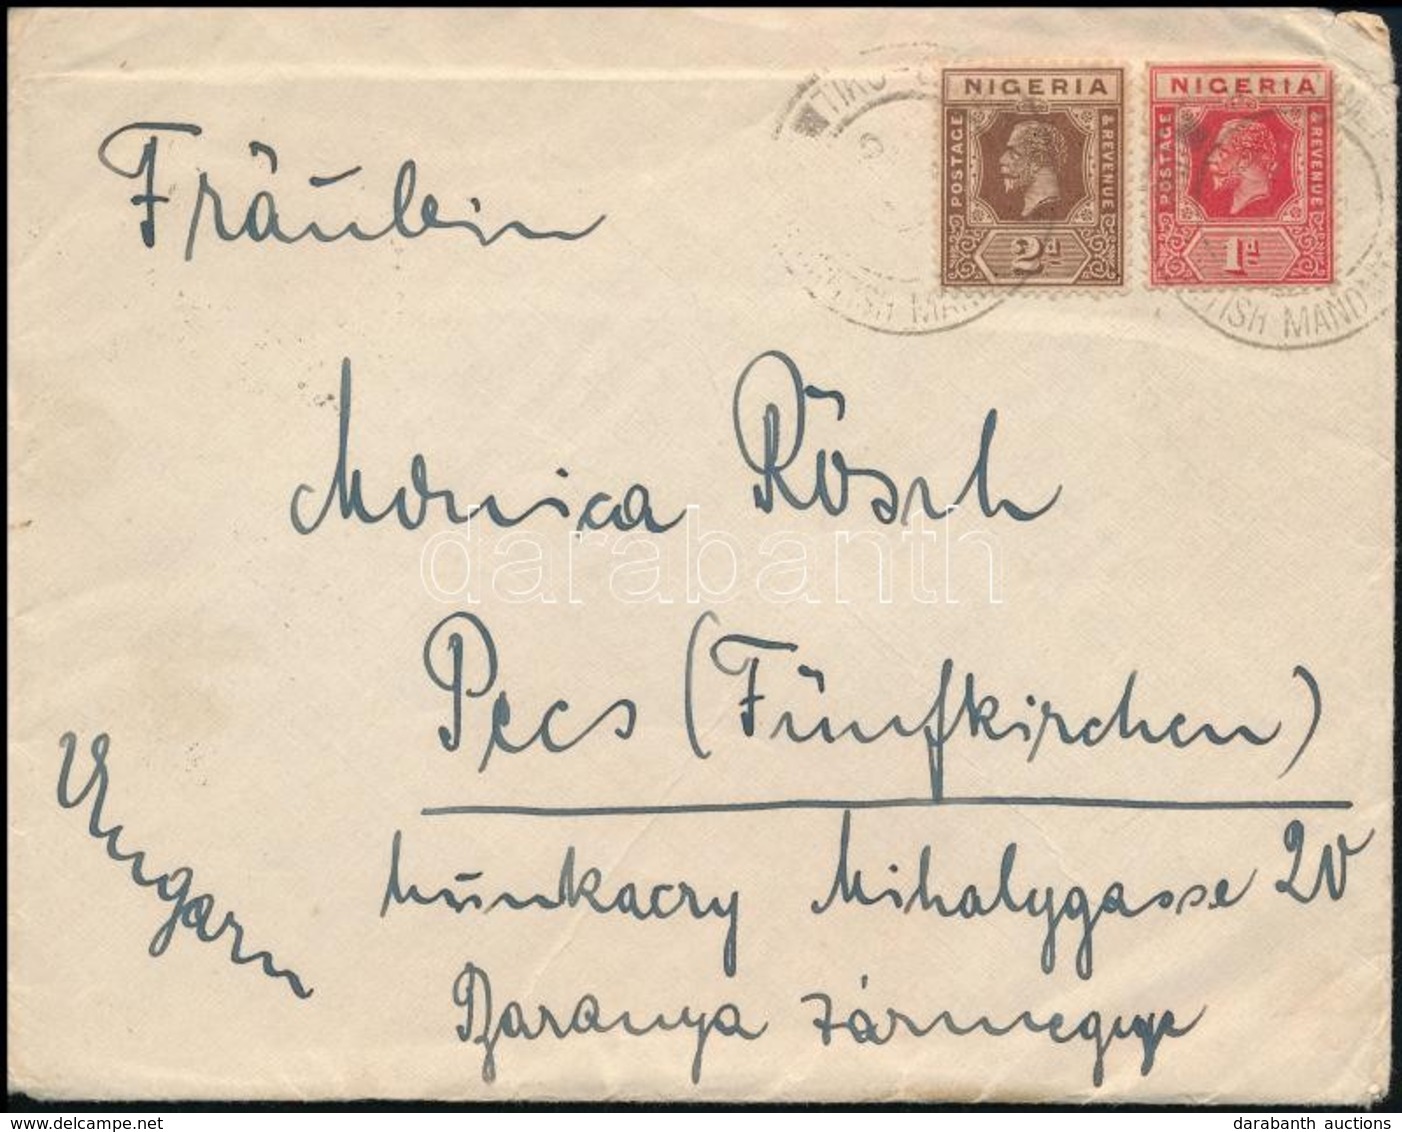 NIGERIA
POSTAGE & REVENUE
2d
NIGERIA
POSTAGE & REVENUE
1d
TIKO
TISH MAN
TISH MAND
Fräulein
Monica Rösch
Pecs (Fünfkirchen)
Ungarn
Munkaczy Mihalygasse 20
Baranya vármegye
darabanth
darabanth auctions